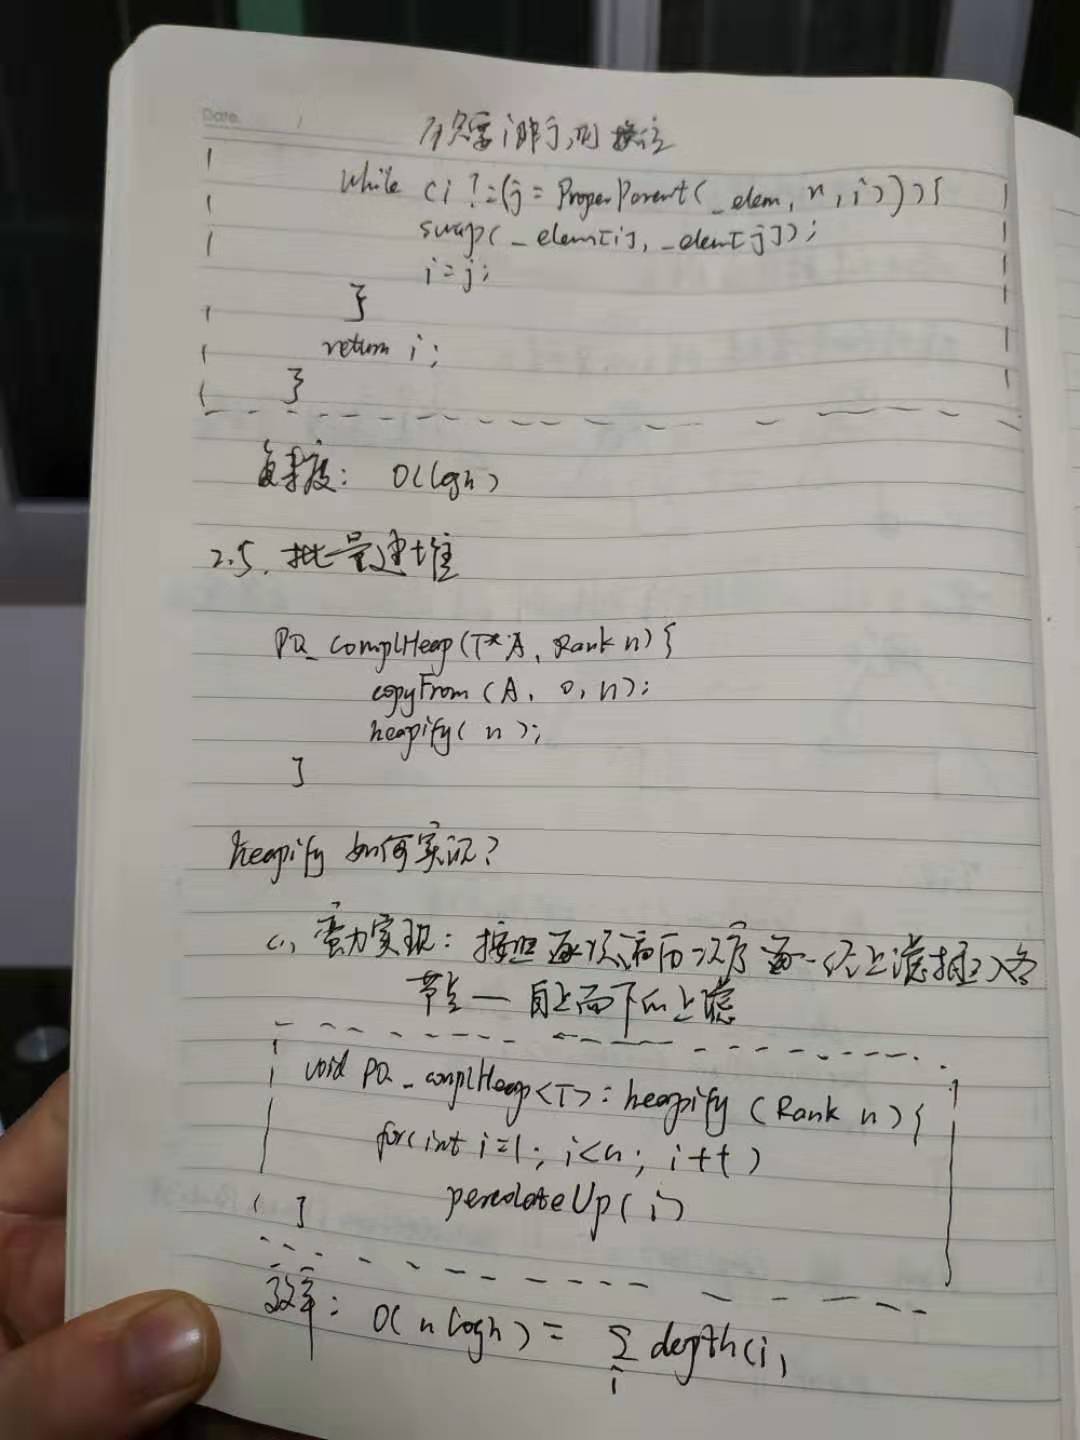 Date.
只要i非j,则换位
while (i != (j = ProperParent(_elem, n, i))){
swap(_elem[i], _elem[j]);
i=j;
}
return i;
}
复杂度: O(logn)
2.5. 批量建堆
PQ_ComplHeap(T* A, Rank n){
copyFrom(A, 0, n);
heapify(n);
}
heapify 如何实现?
(1) 蛮力实现: 按照逐次遍历次序逐一经上滤插入各
节点 — 自上而下的上滤
void PQ_ComplHeap<T>:heapify(Rank n){
for(int i=1; i<n; i++)
percolateUp(i)
}
效率: O(nlogn) = Σ depth(i)
i